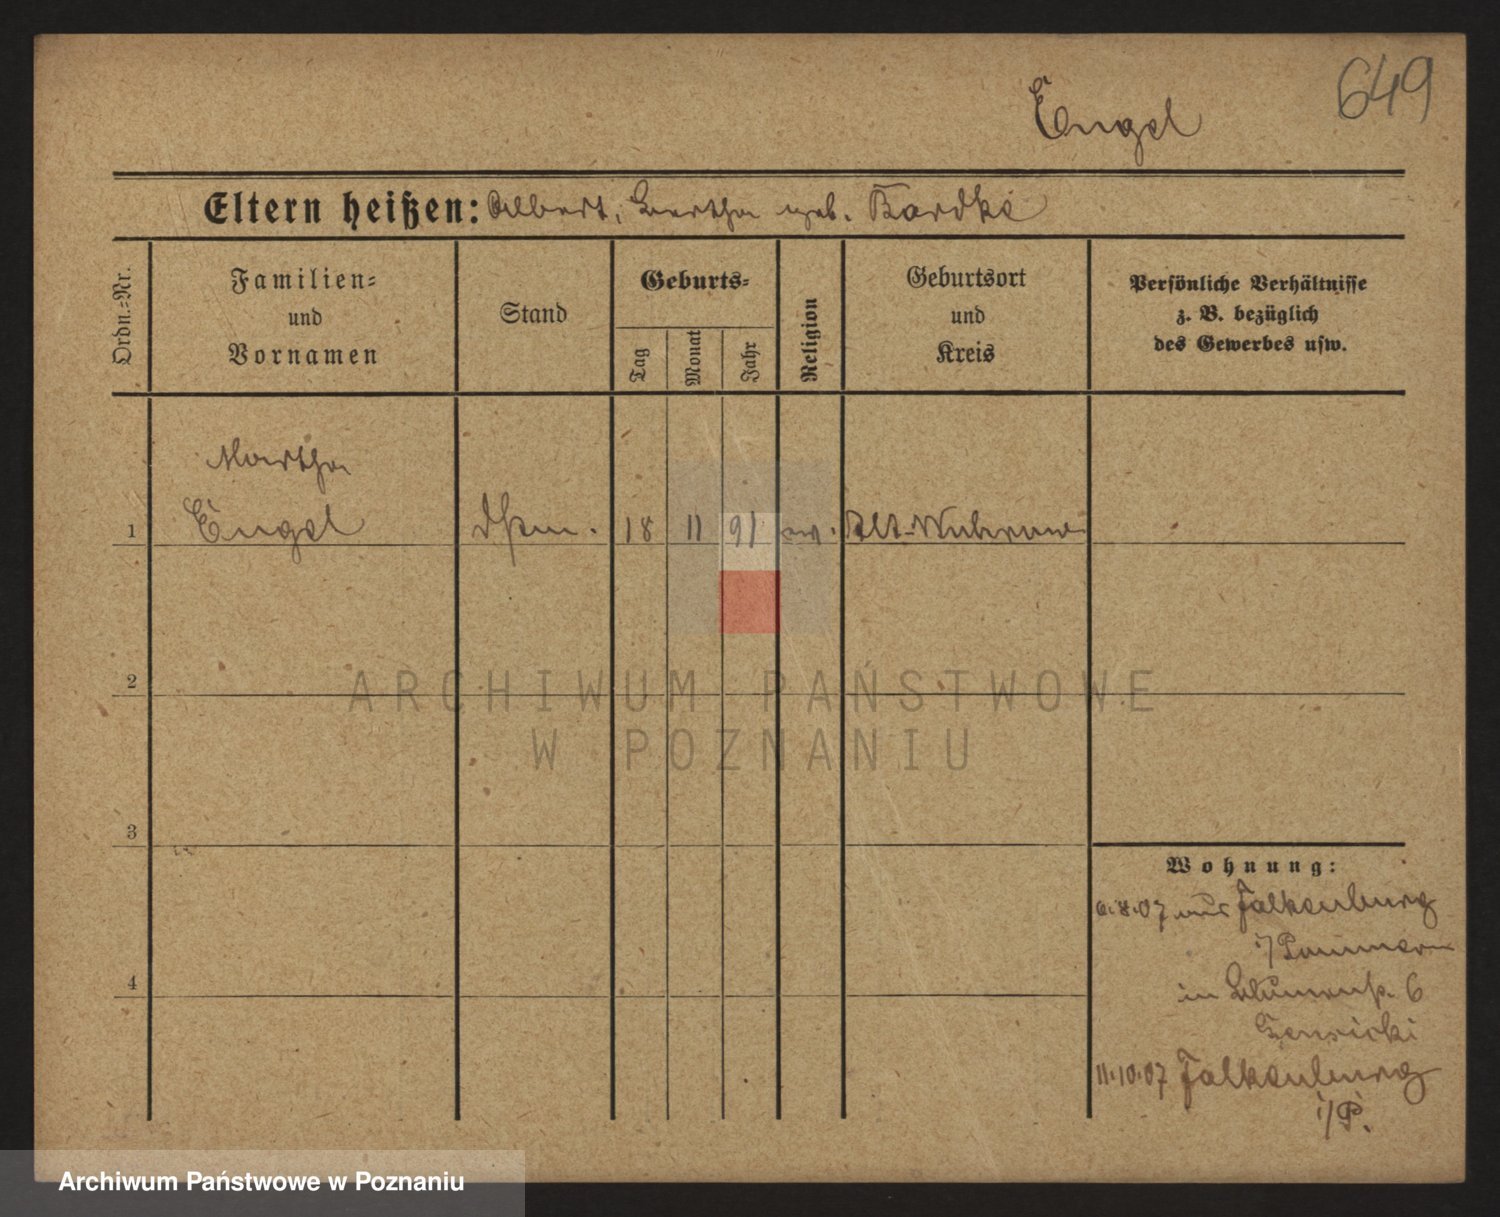 649
Engel
Eltern heißen: Albert, Bertha geb. Kardke
Ordn.-Nr.
Familien-
und
Vornamen
Stand
Geburts-
Tag
Monat
Jahr
Religion
Geburtsort
und
Kreis
Persönliche Verhältnisse
z. B. bezüglich
des Gewerbes usw.
Martha
1 Engel 18 11 91 ev. Alt-
2
ARCHIWUM PAŃSTWOWE
W POZNANIU
3
Wohnung:
6.8.07 aus Falkenburg
i/Pommern
4
in Blumenst. 6
11.10.07 Falkenburg
i/P.
Archiwum Państwowe w Poznaniu